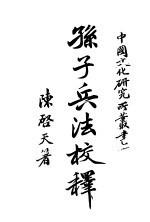 中國文化研究所叢書之一
孫子兵法校釋
陳啓天署